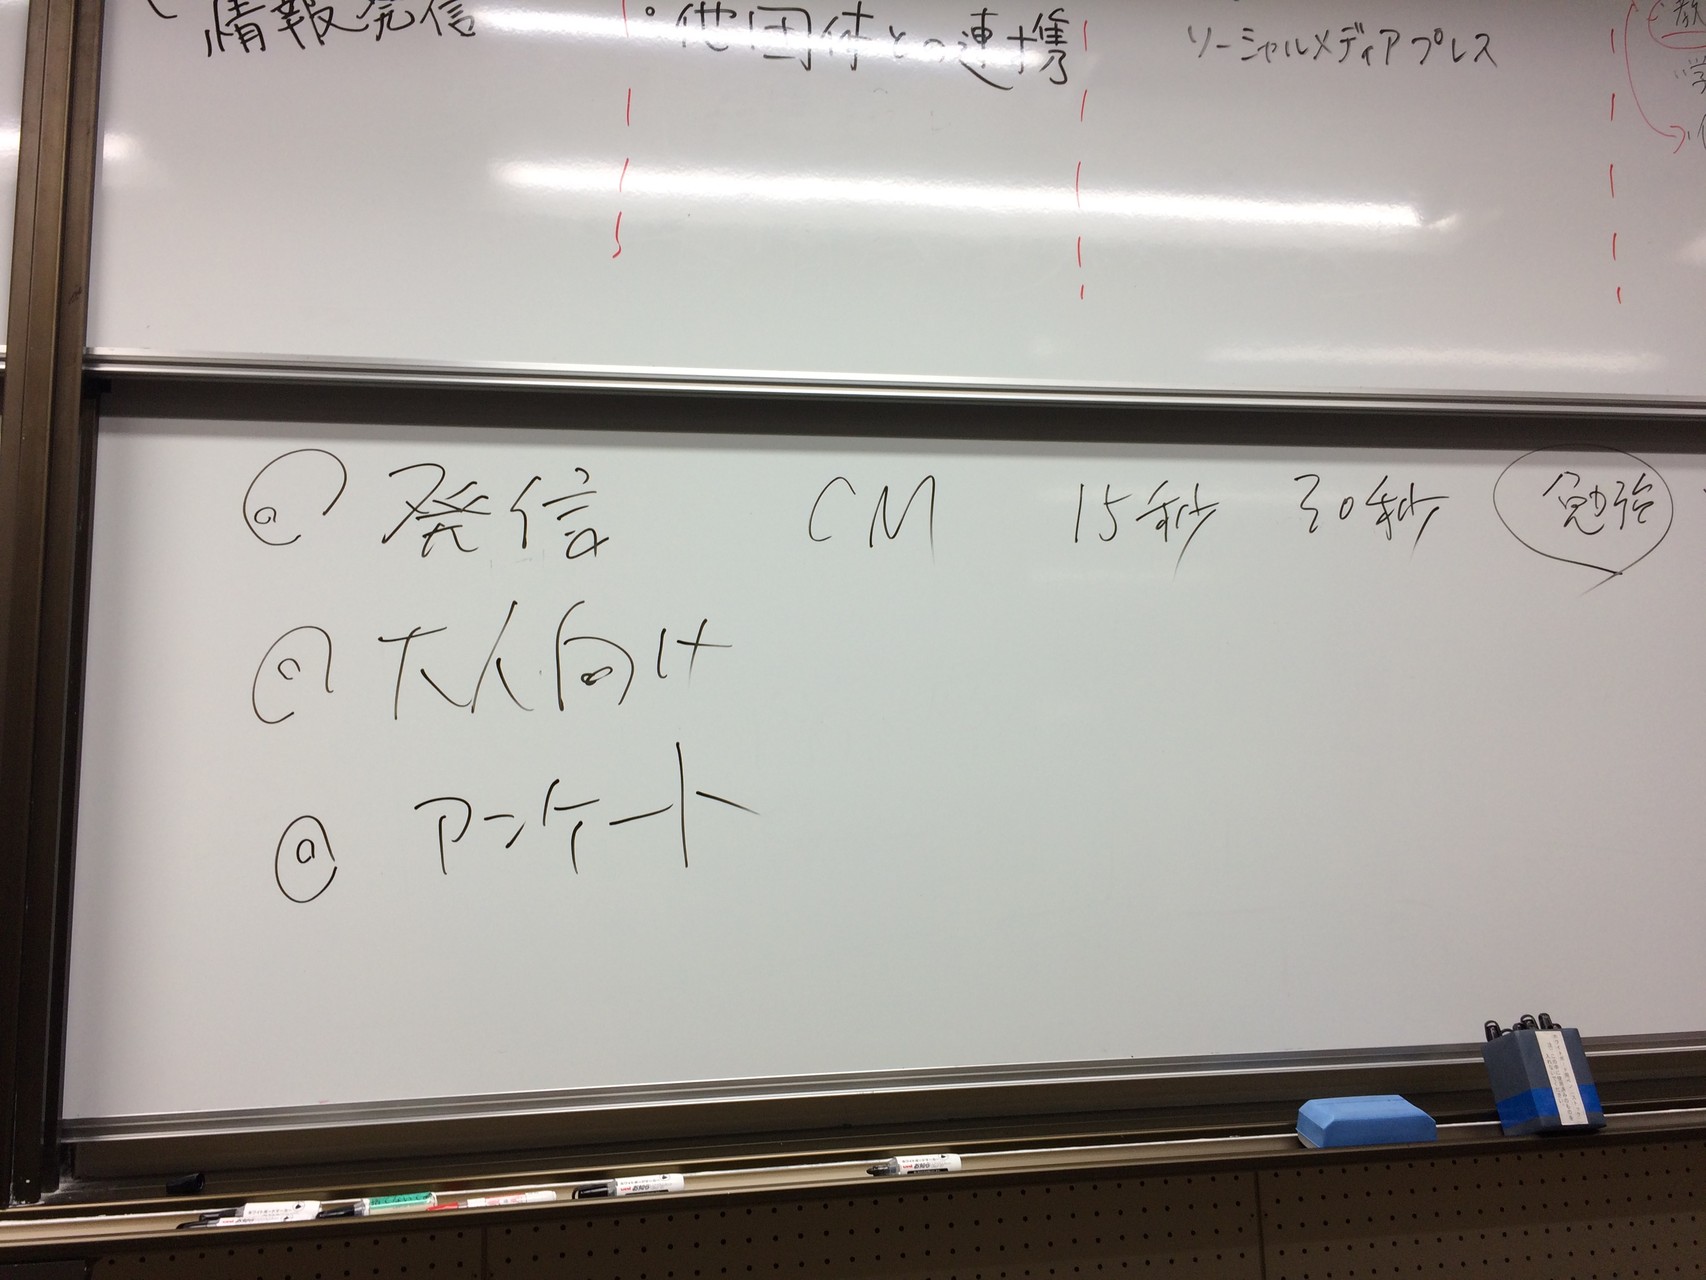 情報発信
・他団体との連携
ソーシャルメディアプレス
教
学
◎ 発信 CM 15秒 30秒 勉強
◎ 大人向け
◎ アンケート